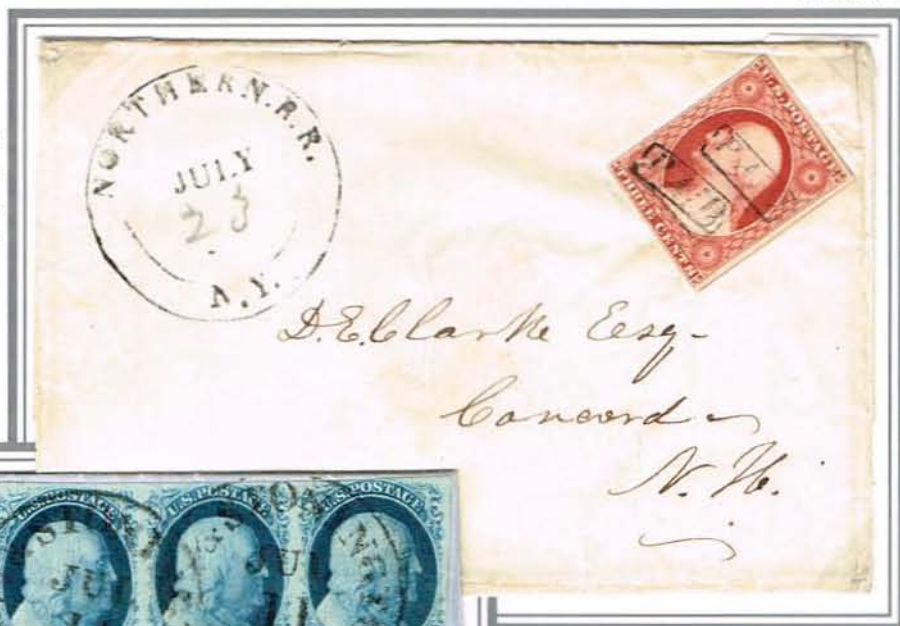 NORTHERN.R.R.
JULY
23
N.Y.
U.S. POSTAGE
PAID
THREE CENTS
D.E. Clarke Esq-
Concord
N. H.
U.S. POSTAGE
U.S. POSTAGE
U.S. POSTAGE
JU
JUL